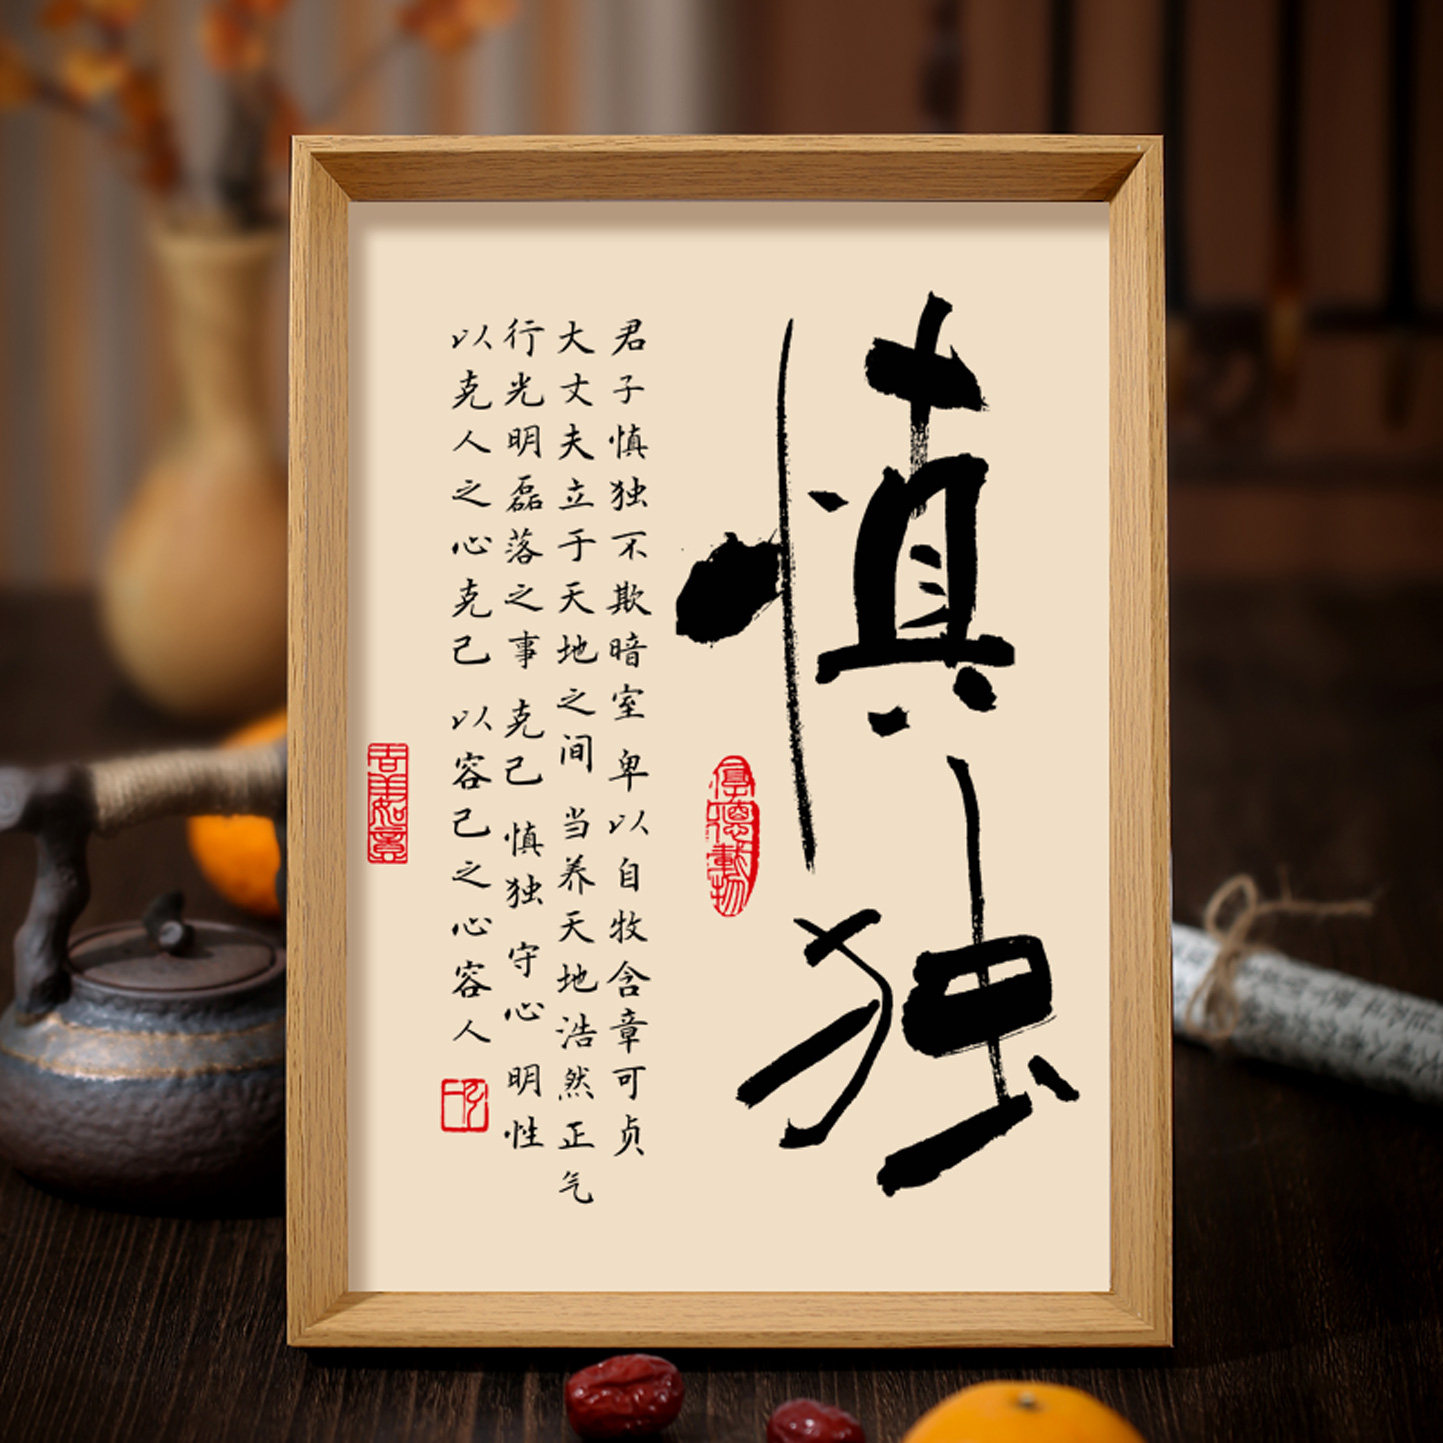 慎独
厚德载物
君子慎独不欺暗室 卑以自牧含章可贞
大丈夫立于天地之间 当养天地浩然正气
行光明磊落之事 克己 慎独 守心 明性
以克人之心克己 以容己之心容人
吉祥如意